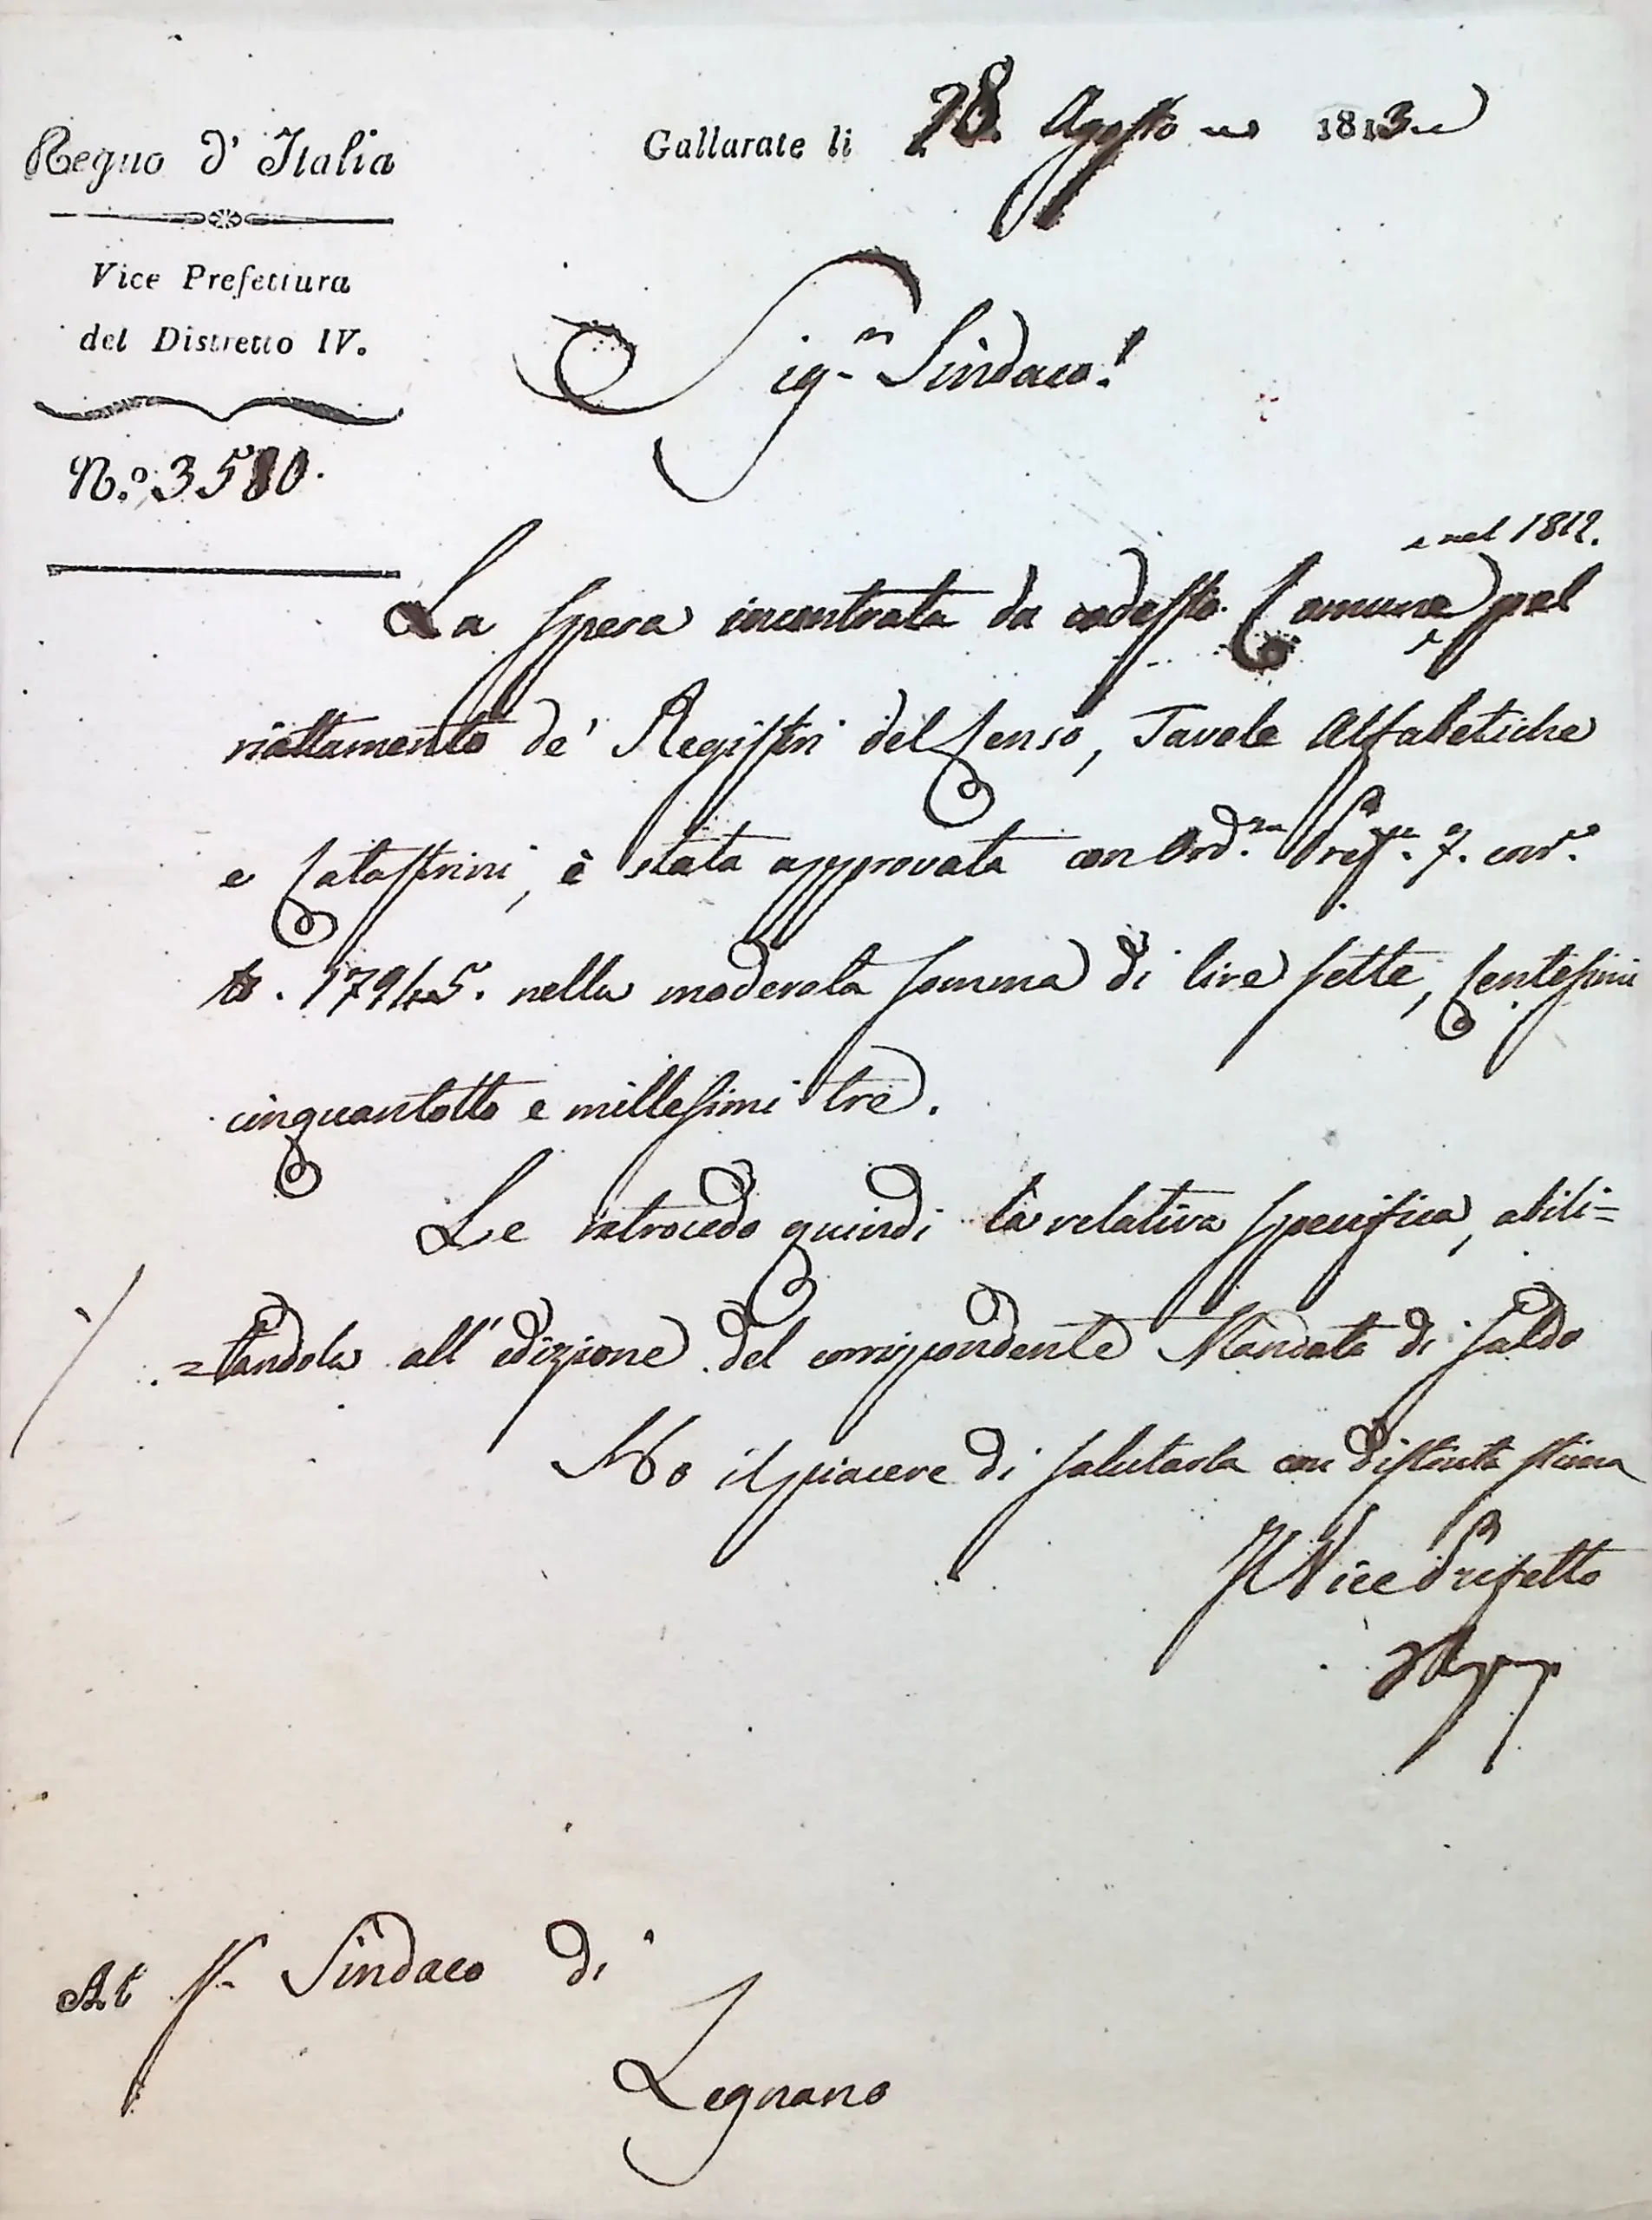 Regno d' Italia
Vice Prefettura
del Distretto IV.
N.o 3580.
Gallarate li 28 Agosto 1813
Sig.r Sindaco!
e nel 1812.
La spesa incontrata da codesto Comune pel
riattamento de' Registri del Censo, Tavole Alfabetiche
e Catastrini, è stata approvata con Ord.za Pref.a 7. corr.e
17945. nella moderata somma di lire sette, Centesimi
cinquantotto e millesimi tre.
Le retrocedo quindi la relativa specifica, abili=
=tandola all' edizione del corrispondente Mandato di saldo
Ho il piacere di salutarla con distinta stima
Il Vice Prefetto
Al S. Sindaco di
Legnano